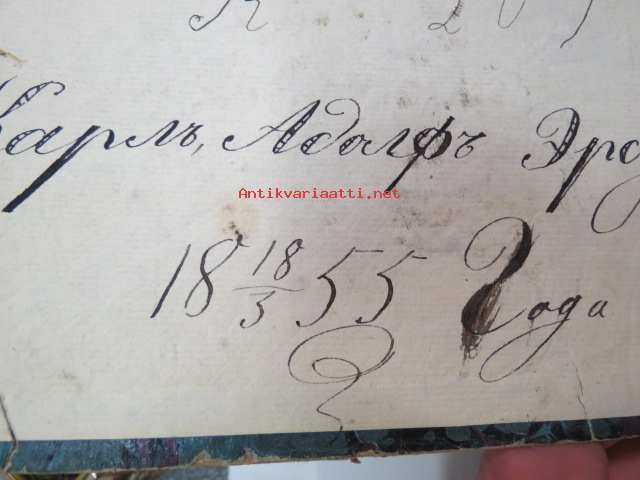 Карлъ, Адолфъ Эрд
Antikvariaatti.net
18 18/3 55 Года